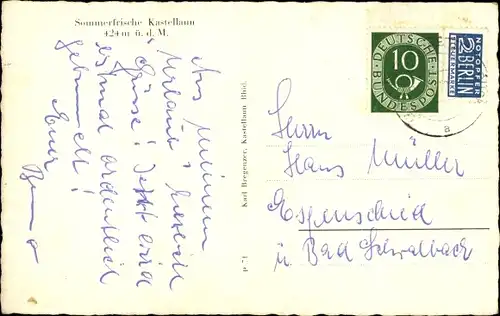 Sommerfrische Kastellaun
424 m ü. d. M.
Aus meinem
Urlaub herzlich
Grüsse! Jetzt wird
erstmal ordentlich
gebummelt!
Euer
Karl Bregenzer, Kastellaun Rhld.
P 71
DEUTSCHE
BUNDESPOST
10
NOTOPFER
2 BERLIN
STEUERMARKE
a
Herrn
Hans Müller
Espenschied
ü. Bad Schwalbach